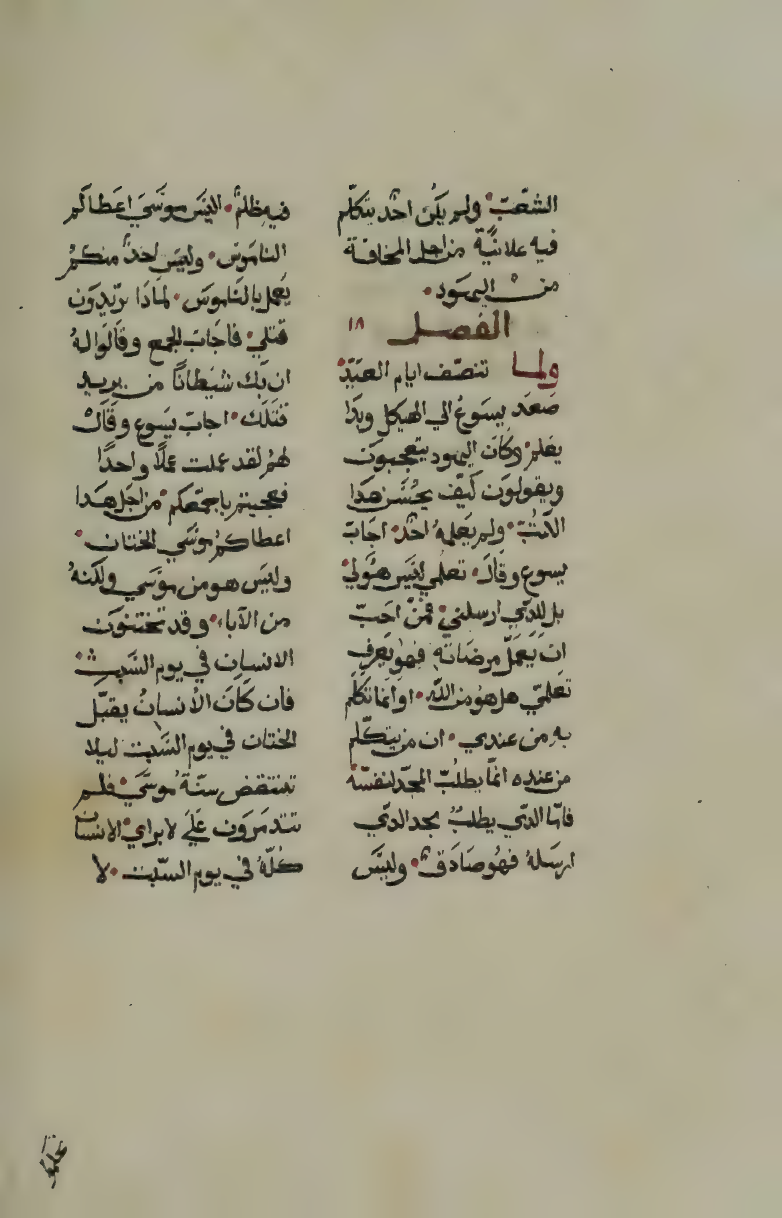 الشعب ولم يكن احد يتكلم
فيه علانية من اجل المخافة
من اليهود
الفصل ١٨
ولما تنصف ايام العيد
صعد يسوع الي الهيكل وبدا
يعلم وكان اليهود يتعجبون
ويقولون كيف يحسن هدا
الكتب ولم يعلمه احد اجاب
يسوع وقال تعلمي ليس هولي
بل للدي ارسلني فمن احب
ان يعمل مرضاته فهو يعرف
تعلمي هل هو من الله او انما اتكلم
به من عندي ان من يتكلم
من عنده انما يطلب المجد لنفسه
فاما الدي يطلب مجد الدي
ارسله فهو صادق وليس
فيه ظلم اليس موسي اعطاكم
الناموس وليس احد منكم
يعمل بالناموس لماذا تريدون
قتلي فاجاب الجمع وقالوا له
ان بك شيطانا من يريد
قتلك اجاب يسوع وقال
لهم لقد عملت عملا واحدا
فعجبتم باجمعكم من اجل هدا
اعطاكم موسي الختان
وليس هو من موسي ولكنه
من الآباء وقد تختنون
الانسان في يوم السبت
فان كان الانسان يقبل
الختان في يوم السبت ليلا
تنتقض سنة موسي فلم
تتدمرون علي لابراي الانسان
كله في يوم السبت لا